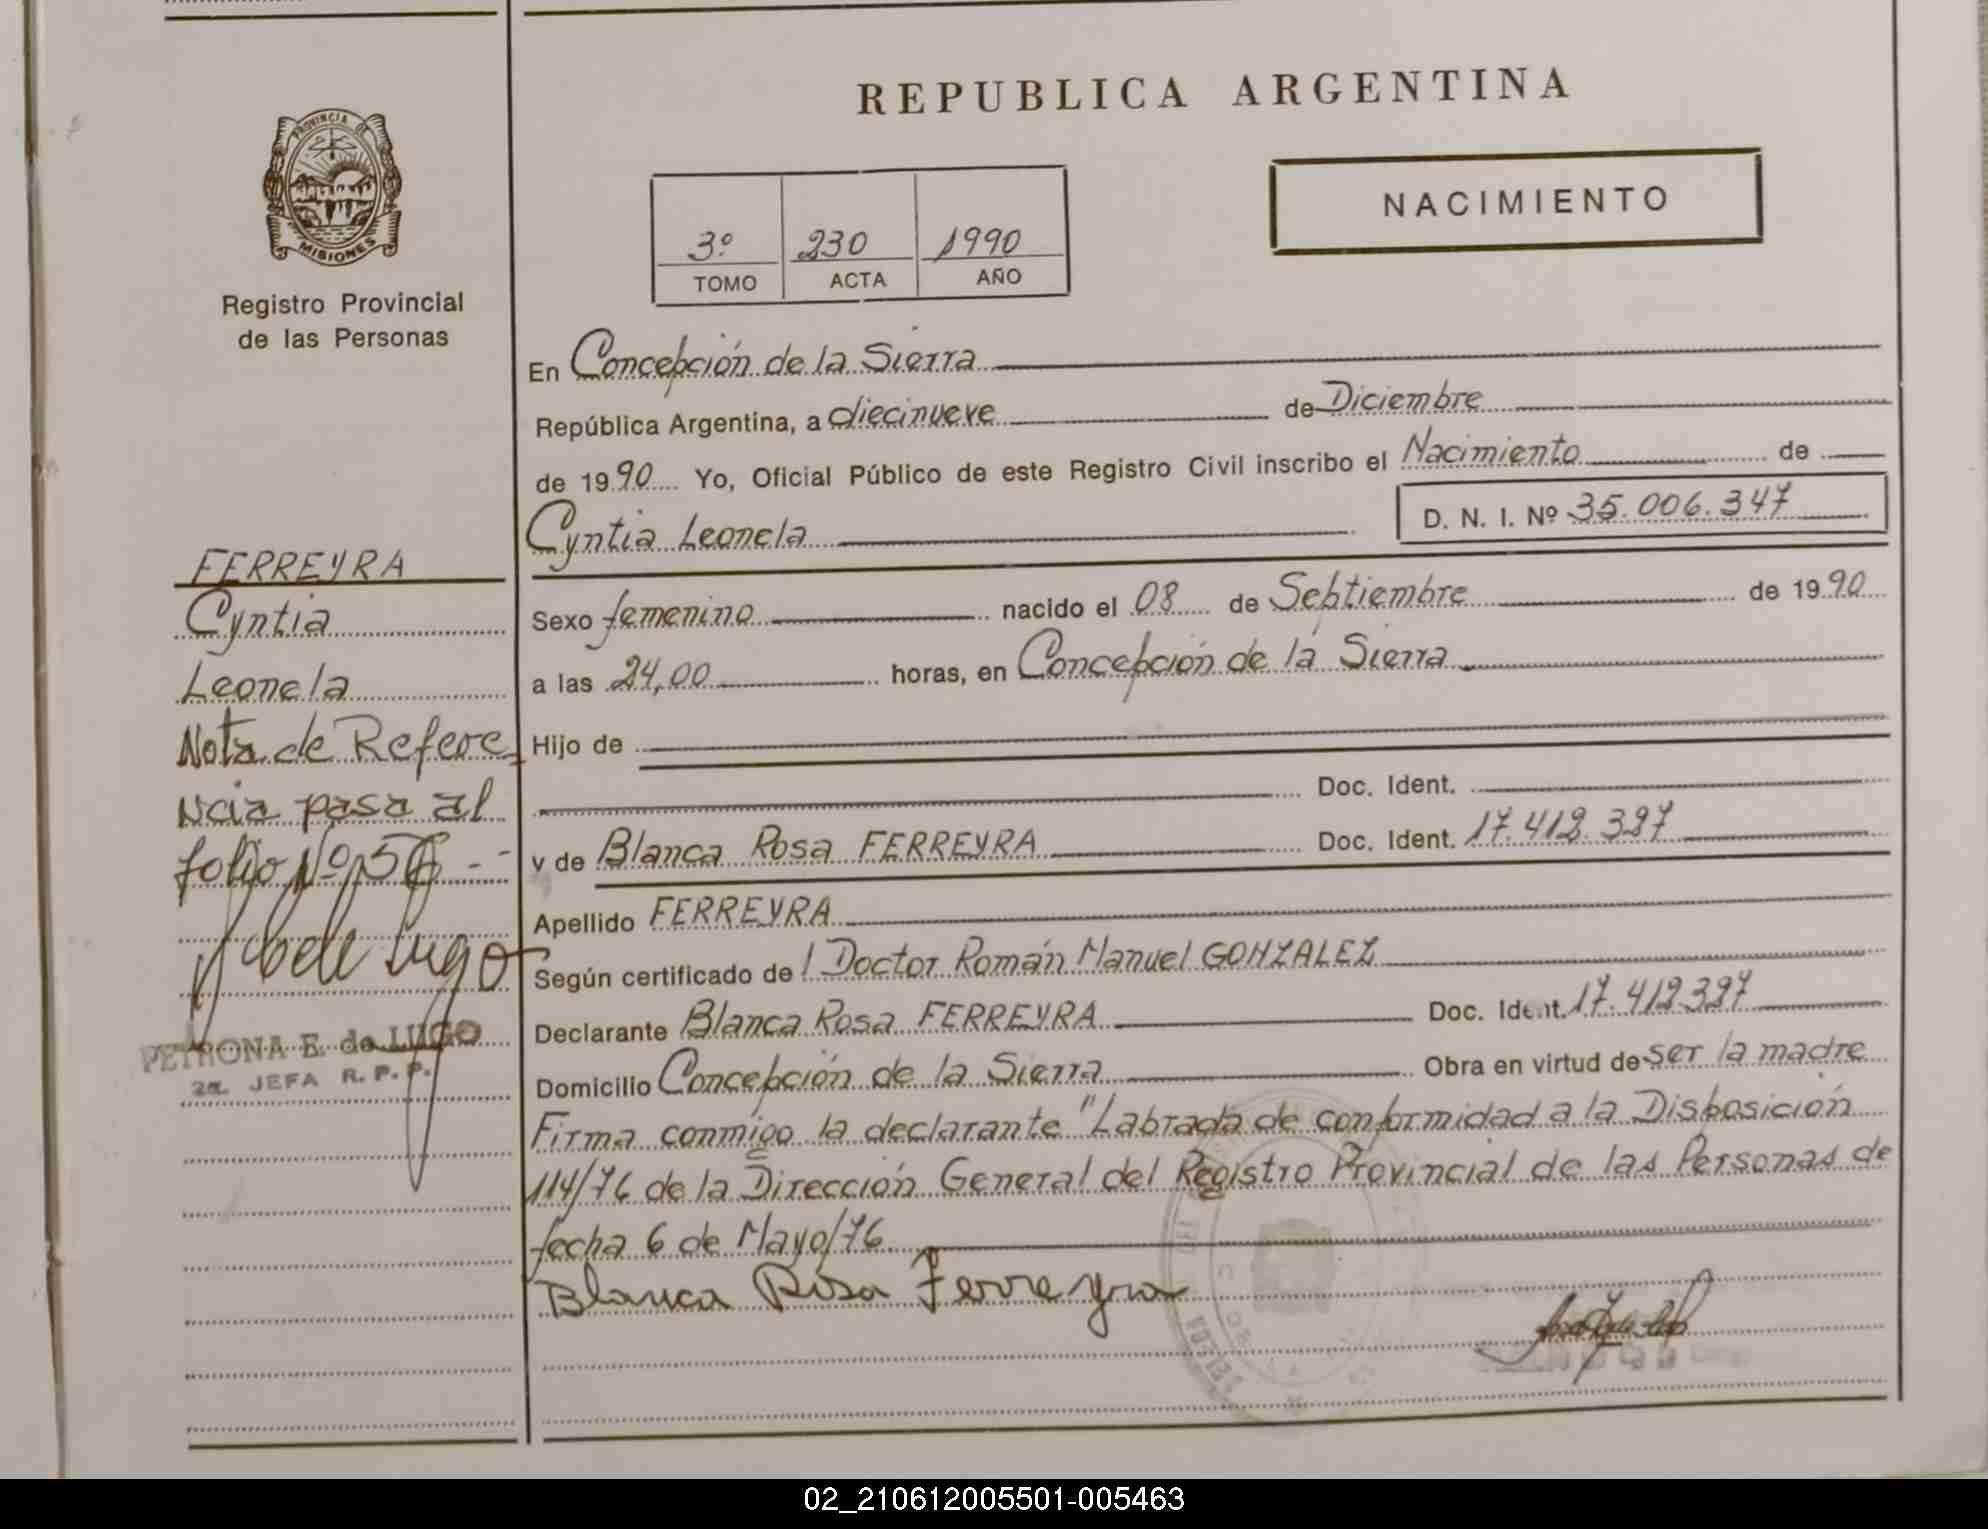 REPUBLICA ARGENTINA
NACIMIENTO
PROVINCIA DE
MISIONES
Registro Provincial
de las Personas
3º 230 1990
TOMO ACTA AÑO
En Concepción de la Sierra
República Argentina, a diecinueve de Diciembre
de 1990 Yo, Oficial Público de este Registro Civil inscribo el Nacimiento de
Cyntia Leonela D. N. I. Nº 35.006.347
Sexo femenino nacido el 08 de Septiembre de 1990
a las 24,00 horas, en Concepción de la Sierra
Hijo de
Doc. Ident.
y de Blanca Rosa FERREYRA Doc. Ident. 17.412.327
Apellido FERREYRA
Según certificado del Doctor Román Manuel GONZALEZ
Declarante Blanca Rosa FERREYRA Doc. Ident. 17.412.327
Domicilio Concepción de la Sierra Obra en virtud de ser la madre
Firma conmigo la declarante "Labrada de conformidad a la Disposición
114/76 de la Dirección General del Registro Provincial de las Personas de
fecha 6 de Mayo/76
Blanca Rosa Ferreyra
FERREYRA
Cyntia
Leonela
Nota de Refere
ncia pasa al
folio Nº
de Lugo
PETRONA E. de LUGO
2a. JEFA R. P. P.
02_210612005501-005463